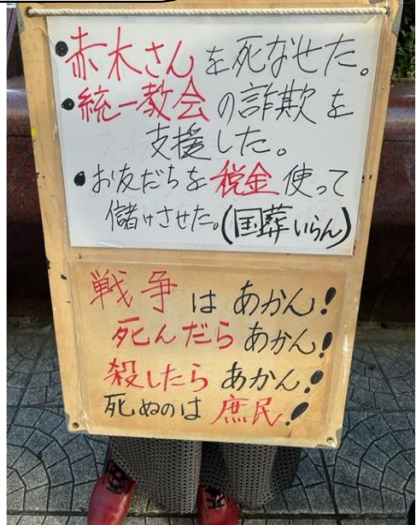 ●赤木さんを死なせた。
●統一教会の詐欺を
支援した。
●お友だちを税金使って
儲けさせた。(国葬いらん)
戦争はあかん!
死んだらあかん!
殺したらあかん!
死ぬのは庶民!